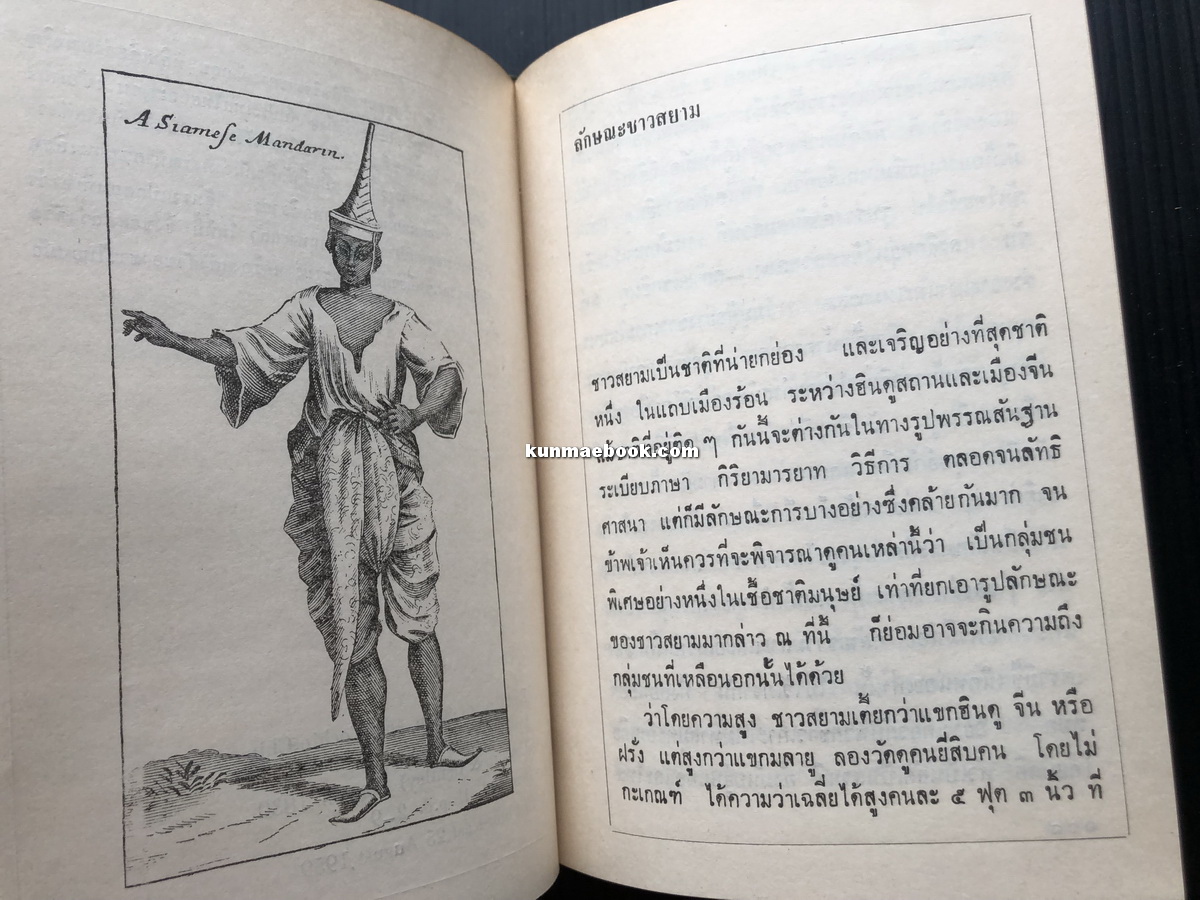 A Siameſe Mandarin.
ลักษณะชาวสยาม
ชาวสยามเป็นชาติที่น่ายกย่อง และเจริญอย่างที่สุดชาติ
หนึ่ง ในแถบเมืองร้อน ระหว่างฮินดูสถานและเมืองจีน
ที่อยู่ติด ๆ กันนี้จะต่างกันในทางรูปพรรณสันฐาน
kunmaebook.com
ระเบียบภาษา กิริยามารยาท วิธีการ ตลอดจนลัทธิ
ศาสนา แต่ก็มีลักษณะการบางอย่างซึ่งคล้ายกันมาก จน
ข้าพเจ้าเห็นควรที่จะพิจารณาดูคนเหล่านี้ว่า เป็นกลุ่มชน
พิเศษอย่างหนึ่งในเชื้อชาติมนุษย์ เท่าที่ยกเอารูปลักษณะ
ของชาวสยามมากล่าว ณ ที่นี้ ก็ย่อมอาจจะกินความถึง
กลุ่มชนที่เหลือนอกนั้นได้ด้วย
ว่าโดยความสูง ชาวสยามเตี้ยกว่าแขกฮินดู จีน หรือ
ฝรั่ง แต่สูงกว่าแขกมลายู ลองวัดดูคนยี่สิบคน โดยไม่
กะเกณฑ์ ได้ความว่าเฉลี่ยได้สูงคนละ ๕ ฟุต ๓ นิ้ว ที่